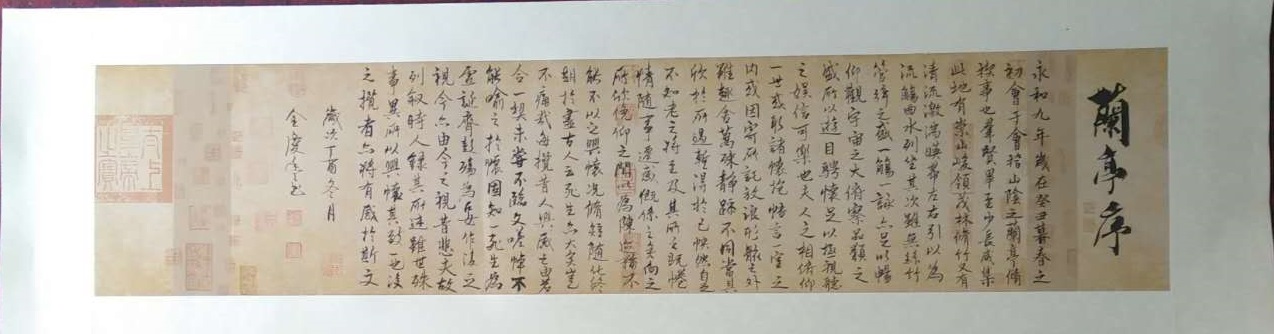 蘭亭序
永和九年歲在癸丑暮春之
初會于會稽山陰之蘭亭脩
禊事也羣賢畢至少長咸集
此地有崇山峻領茂林脩竹又有
清流激湍暎帶左右引以為
流觴曲水列坐其次雖無絲竹
管絃之盛一觴一詠亦足以暢
仰觀宇宙之大俯察品類之
盛所以遊目騁懷足以極視聽
之娛信可樂也夫人之相與俯仰
一世或取諸懷抱悟言一室之
內或因寄所託放浪形骸之外
雖趣舍萬殊靜躁不同當其
欣於所遇暫得於己怏然自足
不知老之將至及其所之既惓
情隨事遷感慨係之矣向之
所欣俛仰之閒以為陳迹猶不
能不以之興懷況脩短隨化終
期於盡古人云死生亦大矣豈
不痛哉每攬昔人興感之由若
合一契未嘗不臨文嗟悼不
能喻之於懷固知一死生為
虛誕齊彭殤為妄作後之
視今亦由今之視昔悲夫故
列敘時人錄其所述雖世殊
事異所以興懷其致一也後
之攬者亦將有感於斯文
歲次丁酉冬月